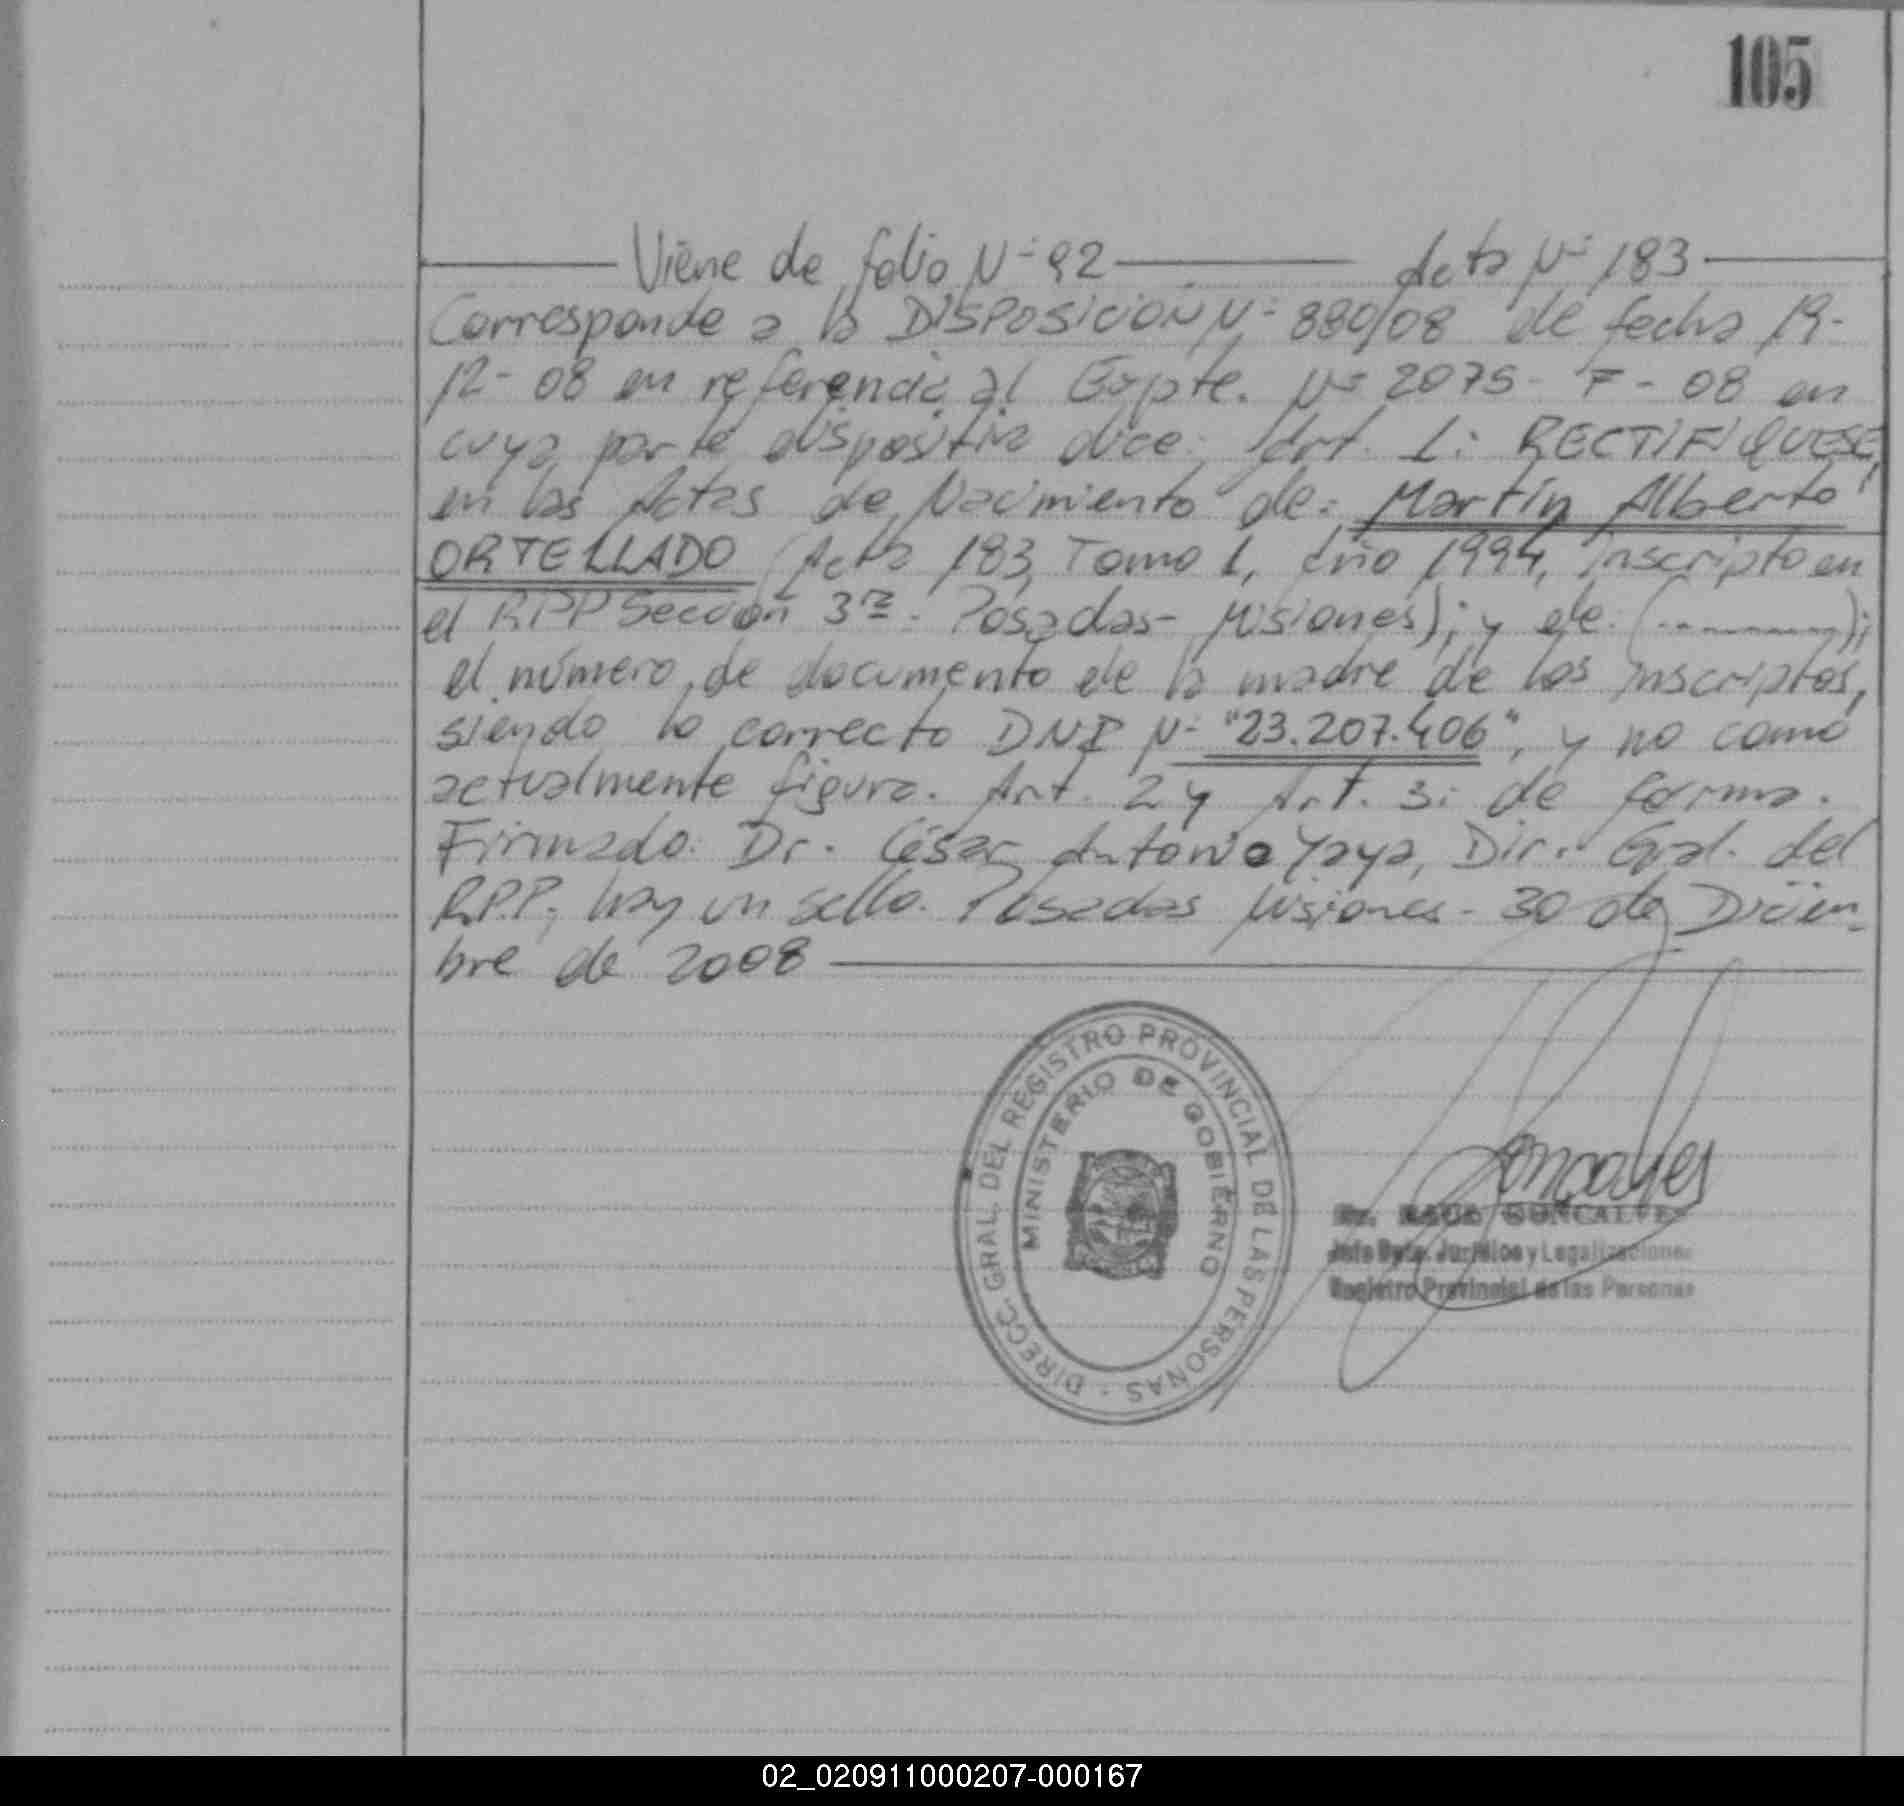 105
Viene de folio Nº 92 Acta Nº 183
Corresponde a la DISPOSICION Nº 880/08 de fecha 19-
12-08 en referencia al Expte. Nº 2075-F-08 en
cuya parte dispositiva dice: Art. 1: RECTIFIQUESE,
en las Actas de Nacimiento de: Martín Alberto
ORTELLADO (Acta 183, Tomo 1, Año 1994, inscripto en
el RPP Sección 3ra - Posadas - Misiones); y de: (............);
el número de documento de la madre de los inscriptos,
siendo lo correcto DNI Nº "23.207.406", y no como
actualmente figura. Art. 2 y Art. 3: de forma.
Firmado: Dr. César Antonio Yaya, Dir. Gral. del
RPP; hay un sello. Posadas Misiones - 30 de Diciem-
bre de 2008
DIRECC. GRAL. DEL REGISTRO PROVINCIAL DE LAS PERSONAS -
MINISTERIO DE GOBIERNO
Goncalves
RAUL GONCALVES
Jefe Dpto. Jurídico y Legalizaciones
Registro Provincial de las Personas
02_020911000207-000167